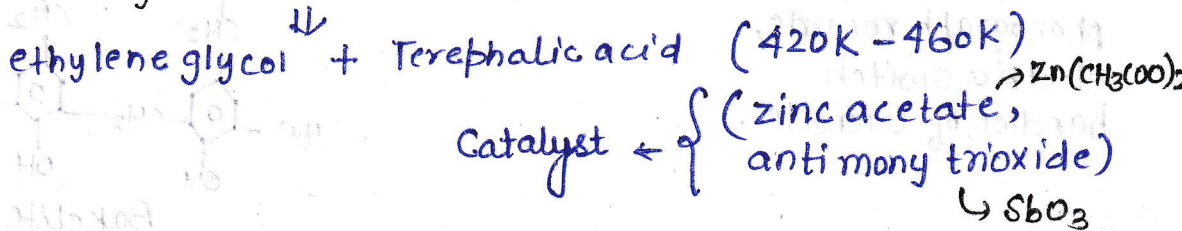 ethylene glycol + Terephalic acid (420K - 460K)
→ Zn(CH3COO)2
Catalyst ← { (zinc acetate,
antimony trioxide)
↳ SbO3